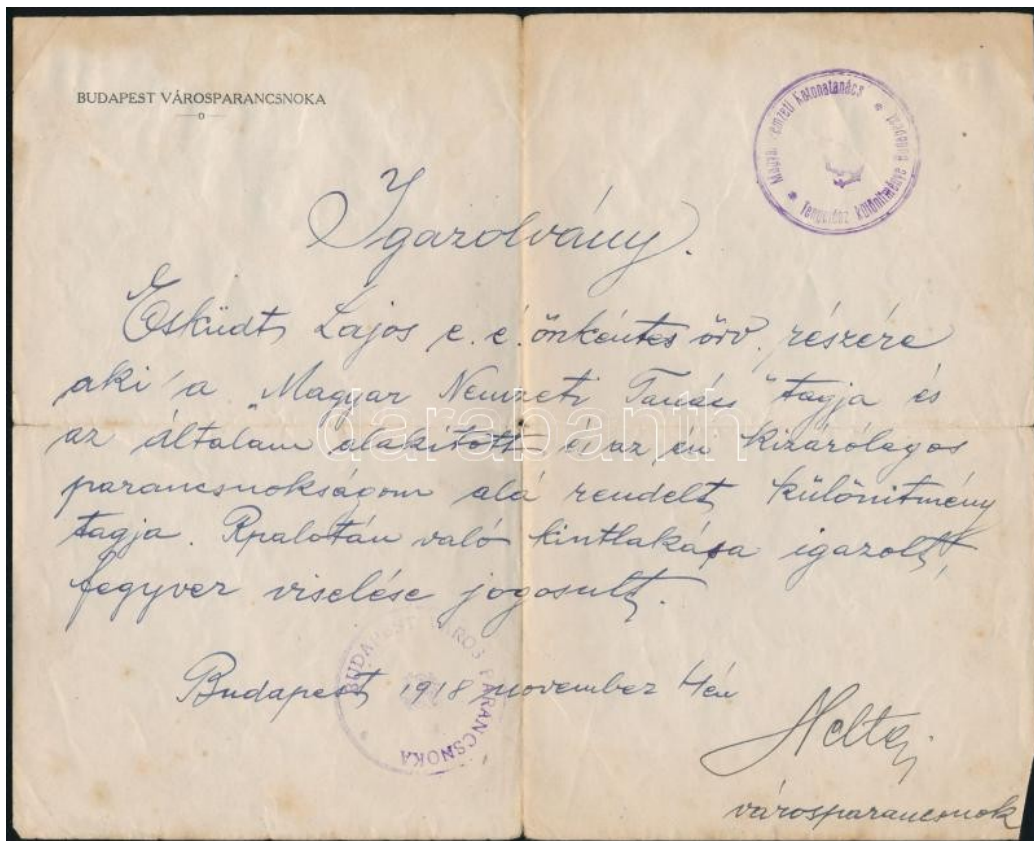 BUDAPEST VÁROSPARANCSNOKA
Magyar Nemzeti Katonatanács * Tengerész különítménye Budapest *
Igazolvány.
Esküdt Lajos e. é. önkéntes őrv. részére
aki a "Magyar Nemzeti Tanács" tagja és
az általam alakitott és az én kizárólagos
parancsnokságom alá rendelt különitmény
tagja. Rpalotán való kintlakása igazolt,
fegyver viselése jogosult.
darabanth
BUDAPEST VÁROS PARANCSNOKA
Budapest, 1918 november 4én
Heltai
városparancsnok